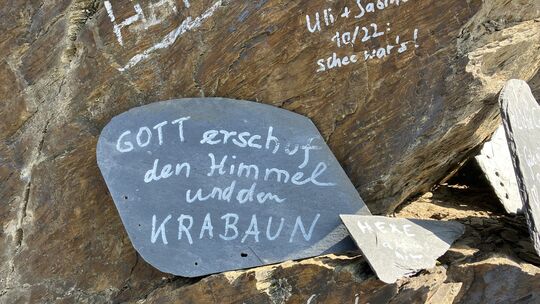 Uli + Sabine
10/22:
schee war's!
GOTT erschuf
den Himmel
und den
KRABAUN
HEXE